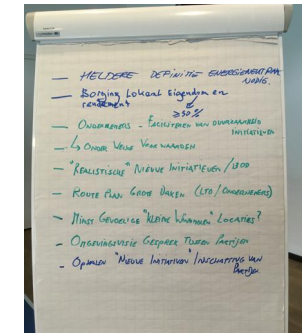 — HELDERE DEFINITIE ENERGIENEUTRAAL NODIG.
— Borging Lokaal Eigendom en rendement
≥50%
— ONDERNEMERS - FACILITEREN VAN DUURZAAMHEID INITIATIEVEN
↳ ONDER WELKE VOORWAARDEN
— "REALISTISCHE" NIEUWE INITIATIEVEN /
— ROUTE PLAN GROTE DAKEN (LTO / ONDERNEMERS)
— MINST GEVOELIGE "KLEINE WINDMOLEN" LOCATIES?
— OMGEVINGSVISIE GESPREK TUSSEN PARTIJEN
— OPHALEN "NIEUWE INITIATIEVEN" / INSCHATTING VAN PARTIJEN